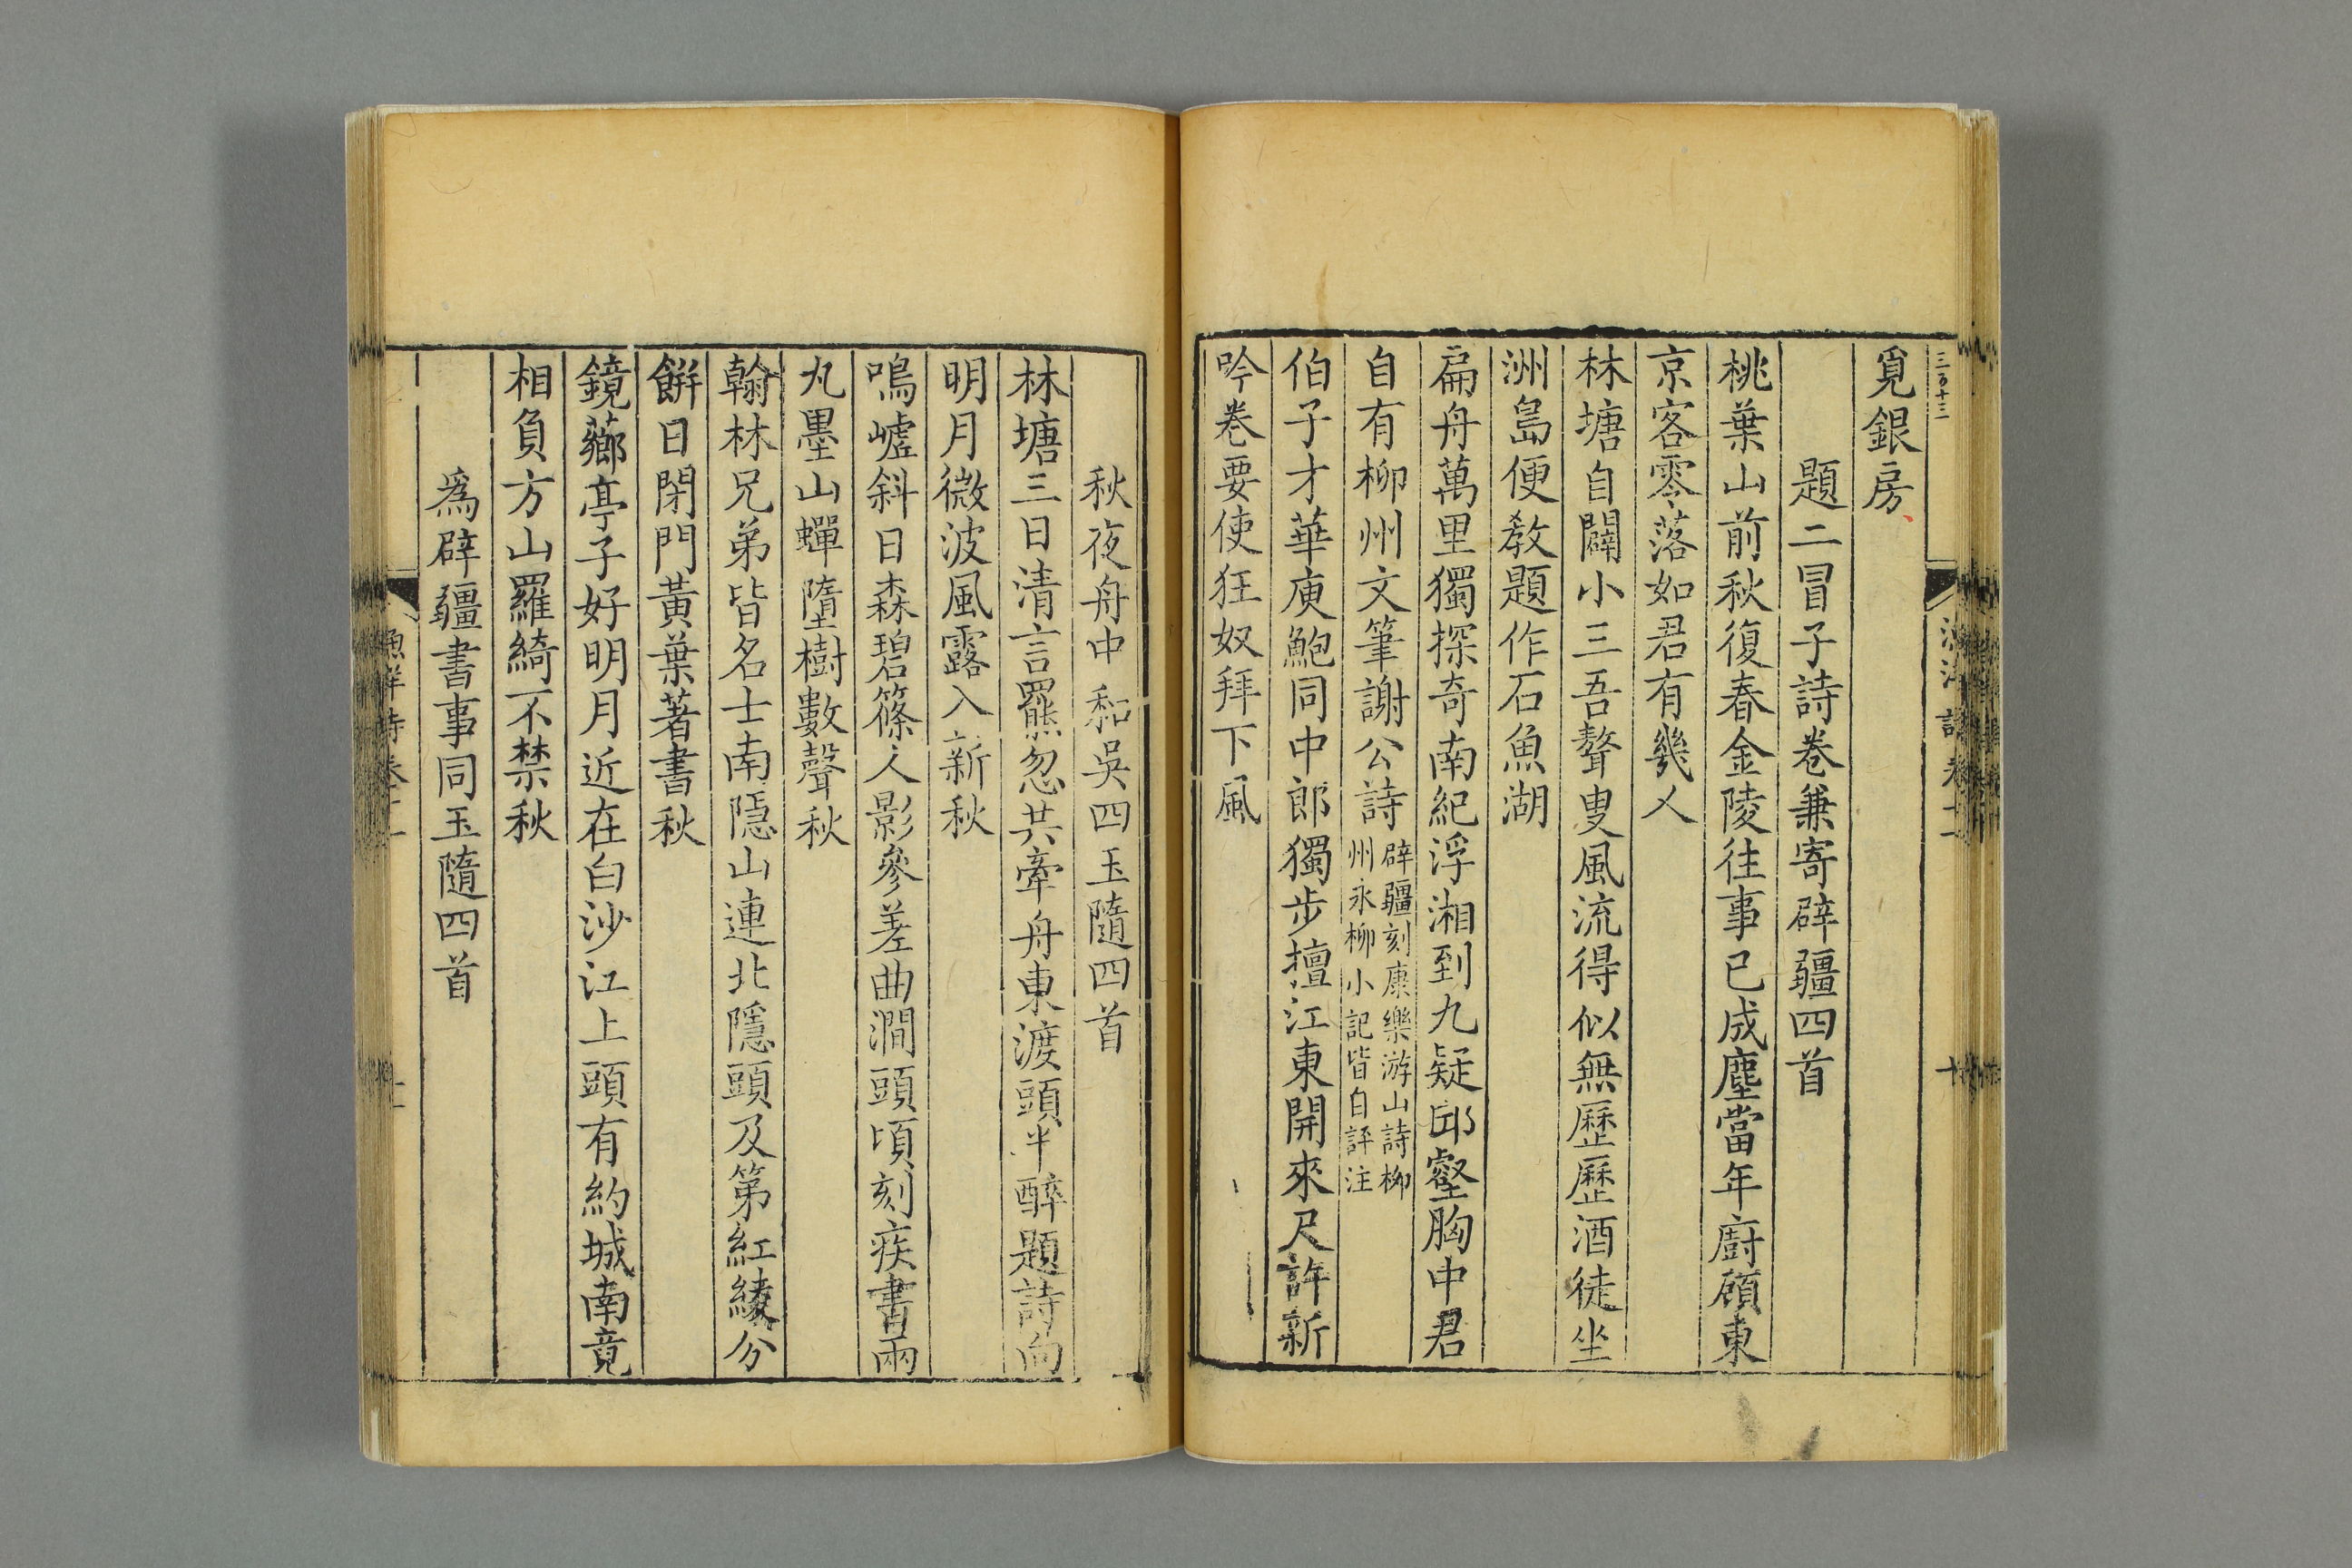 三百十三
覓銀房
題二冒子詩卷兼寄辟疆四首
桃葉山前秋復春金陵往事已成塵當年廚顧東
京客零落如君有幾人
林塘自闢小三吾聱叟風流得似無歷歷酒徒坐
洲島便教題作石魚湖
扁舟萬里獨探奇南紀浮湘到九疑邱壑胸中君
自有柳州文筆謝公詩辟疆刻康樂游山詩柳
州永柳小記皆自評注
伯子才華庾鮑同中郎獨步擅江東開來尺許新
吟卷要使狂奴拜下風
秋夜舟中和吳四玉隨四首
林塘三日清言罷忽共牽舟東渡頭半醉題詩向
明月微波風露入新秋
鳴嘘斜日森碧篠人影參差曲澗頭頃刻疾書兩
丸墨山蟬墮樹數聲秋
翰林兄弟皆名士南隱山連北隱頭及第紅綾分
餅日閉門黃葉著書秋
鏡薌亭子好明月近在白沙江上頭有約城南竟
相負方山羅綺不禁秋
爲辟疆書事同玉隨四首
漁洋詩卷十一